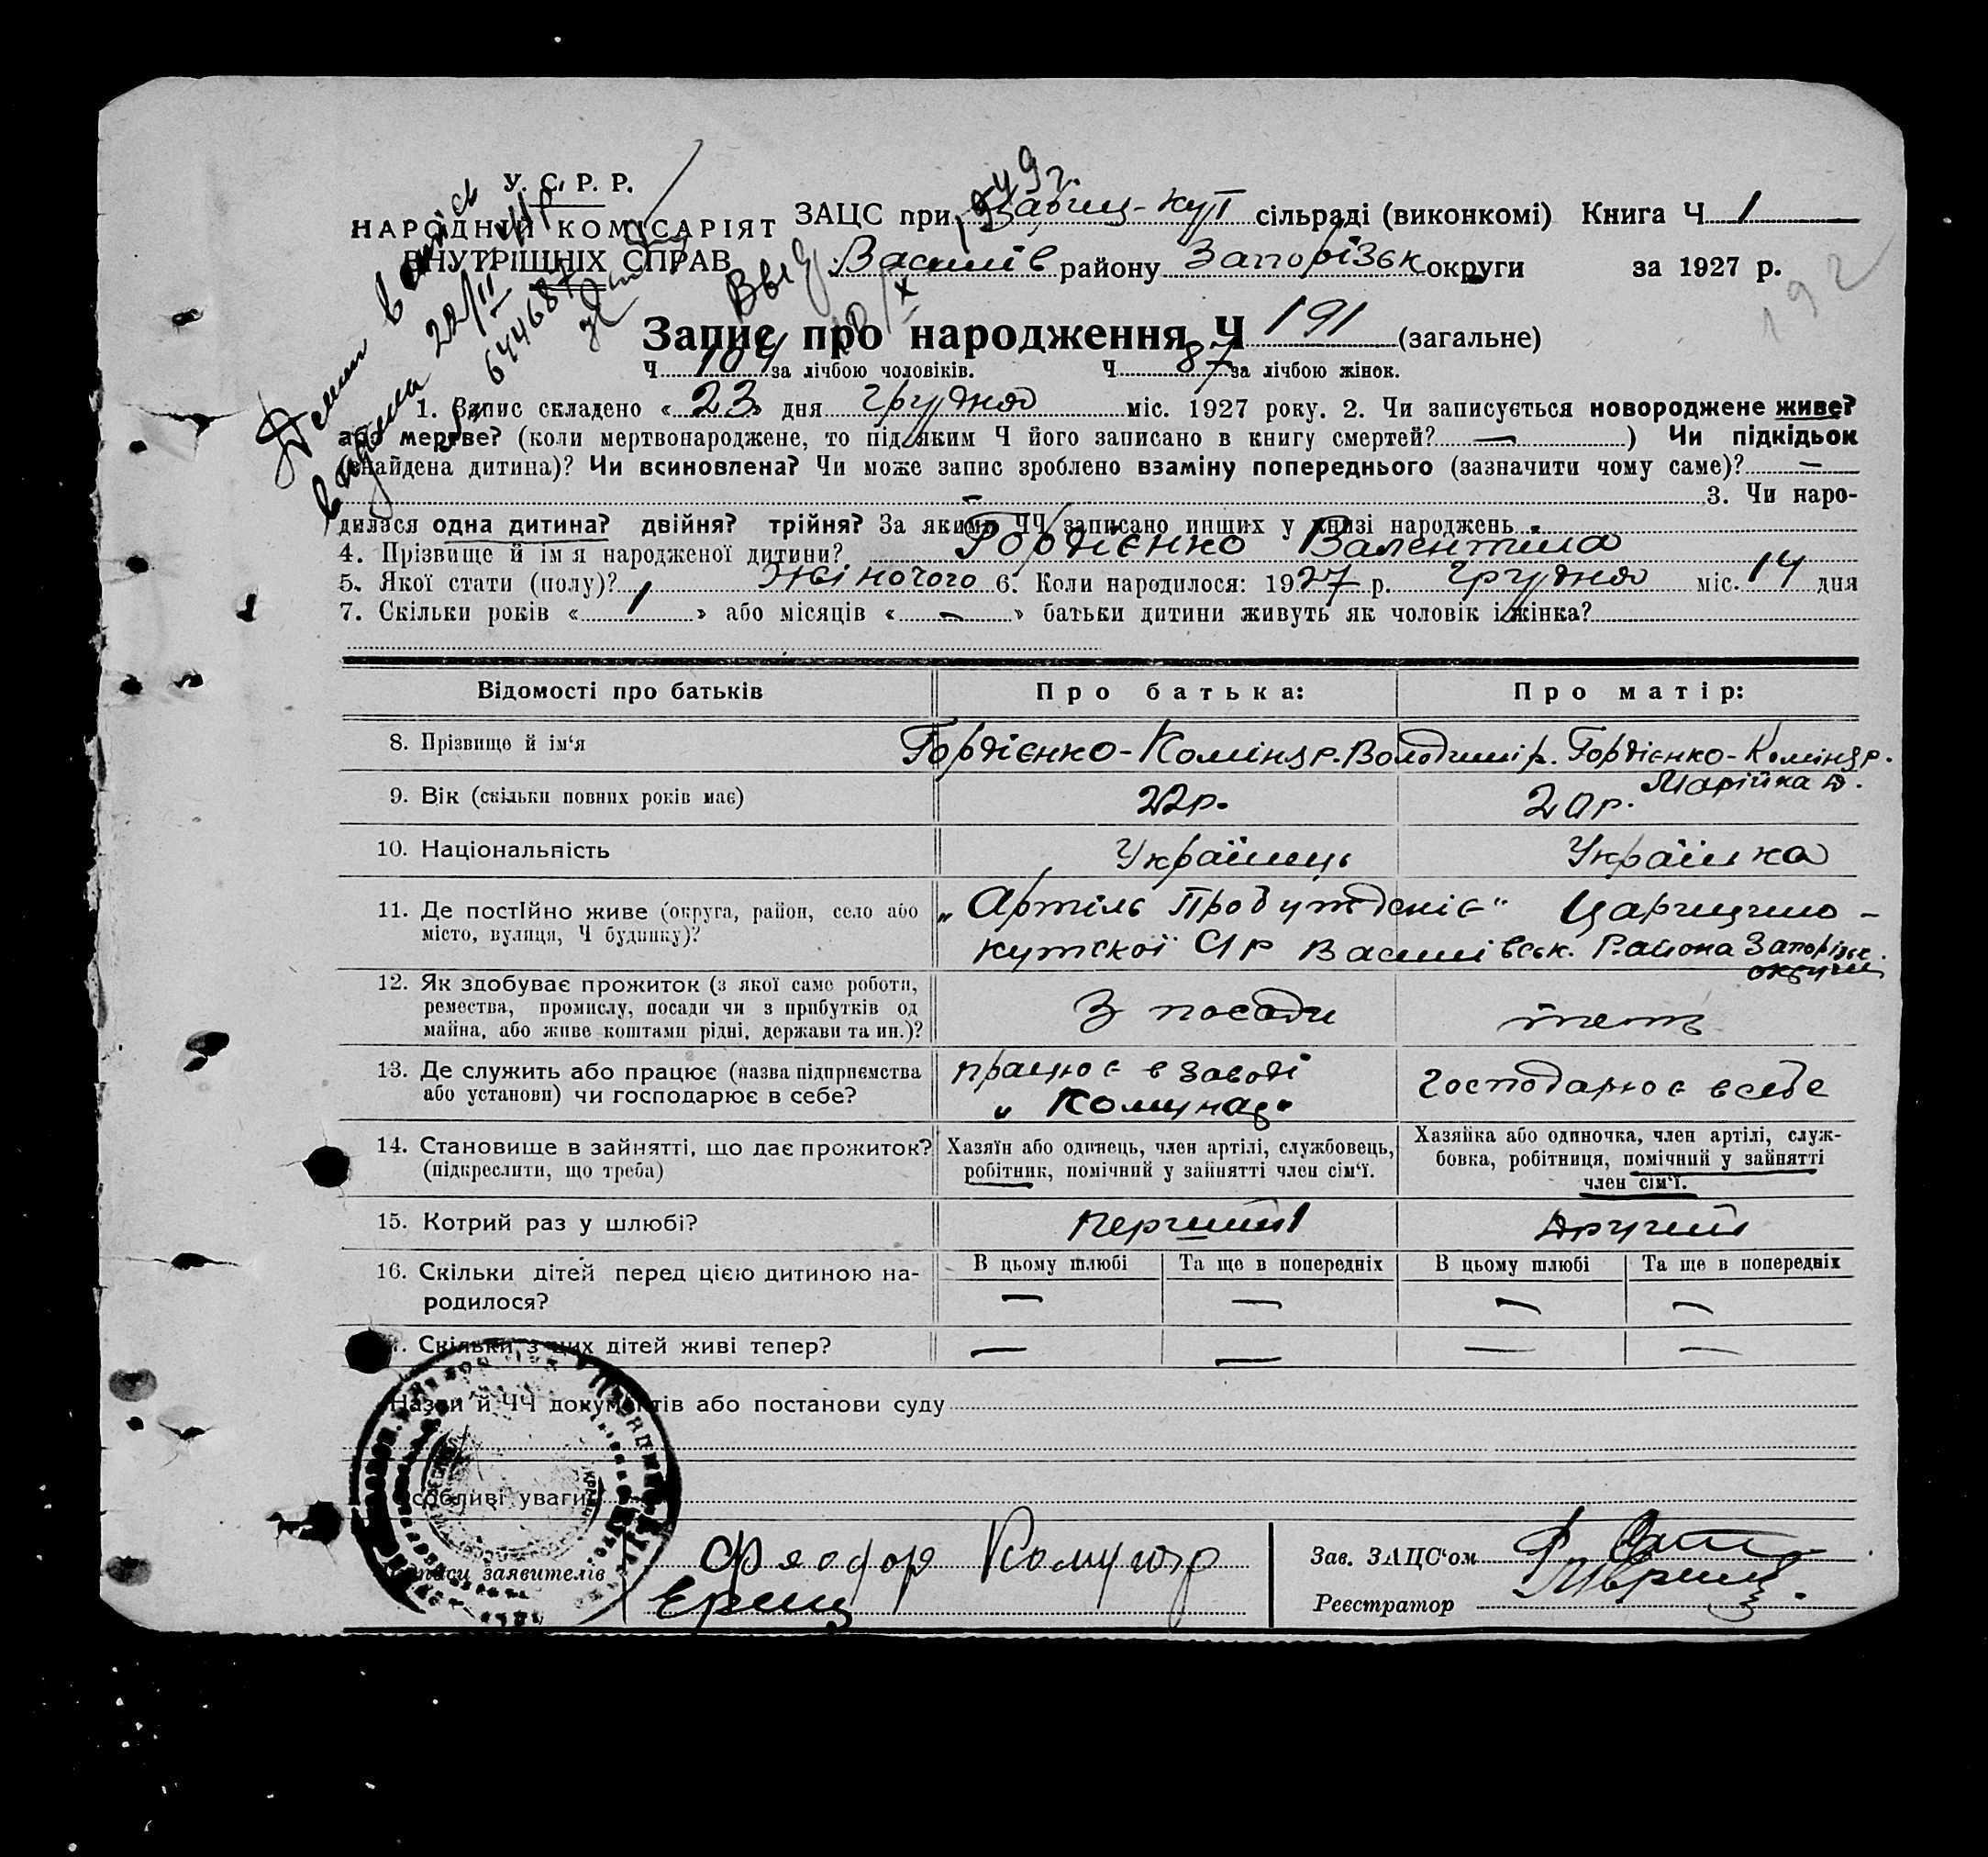 У. С. Р. Р.
НАРОДНИЙ КОМІСАРІЯТ
ВНУТРІШНІХ СПРАВ
ЗАЦС при Цариц-кут сільраді (виконкомі) Книга Ч 1
Василів району Запорізьк округи за 1927 р.
192
Запис про народження Ч 191 (загальне)
Ч 104 за лічбою чоловіків. Ч 87 за лічбою жінок.
1. Запис складено « 23 » дня Грудня міс. 1927 року. 2. Чи записується новороджене живе?
або мертве? (коли мертвонароджене, то під яким Ч його записано в книгу смертей? — ) Чи підкідьок
(знайдена дитина)? Чи всиновлена? Чи може запис зроблено взаміну попереднього (зазначити чому саме)? —
3. Чи наро-
дилася одна дитина? двійня? трійня? За якими ЧЧ записано инших у книзі народжень -
4. Прізвище й ім'я народженої дитини? Гордієнко Валентина
5. Якої стати (полу)? Жіночого 6. Коли народилося: 1927 р. Грудня міс. 14 дня
7. Скільки років « 1 » або місяців « - » батьки дитини живуть як чоловік і жінка?
Відомості про батьків Про батька: Про матір:
8. Прізвище й ім'я Гордієнко-Комінзр. Володимір. Гордієнко-Комінзр.
Марійка
9. Вік (скільки повних років має) 22р. 20р.
10. Національність Українць Українка
11. Де постійно живе (округа, район, село або місто, вулиця, Ч будинку)? „Артіль Пробужденіє" Царицино-
кутскої С/Р Василівськ. Района Запорізьк.
округи
12. Як здобуває прожиток (з якої саме роботи, ремества, промислу, посади чи з прибутків од майна, або живе коштами рідні, держави та ин.)? З посади
13. Де служить або працює (назва підприємства або установи) чи господарює в себе? працює в заводі „Комунар" господарює в себе
14. Становище в зайнятті, що дає прожиток? (підкреслити, що треба) Хазяїн або одинець, член артілі, службовець, робітник, помічний у зайнятті член сім'ї. Хазяйка або одиночка, член артілі, служ-
бовка, робітниця, помічний у зайнятті
член сім'ї.
15. Котрий раз у шлюбі? Перший Другий
16. Скільки дітей перед цією дитиною на-
родилося? В цьому шлюбі Та ще в попередніх В цьому шлюбі Та ще в попередніх
— — — —
Скільки з цих дітей живі тепер? — — — —
Назви й ЧЧ документів або постанови суду
Особливі уваги
Підписи заявителів
Зав. ЗАЦС'ом
Реєстратор